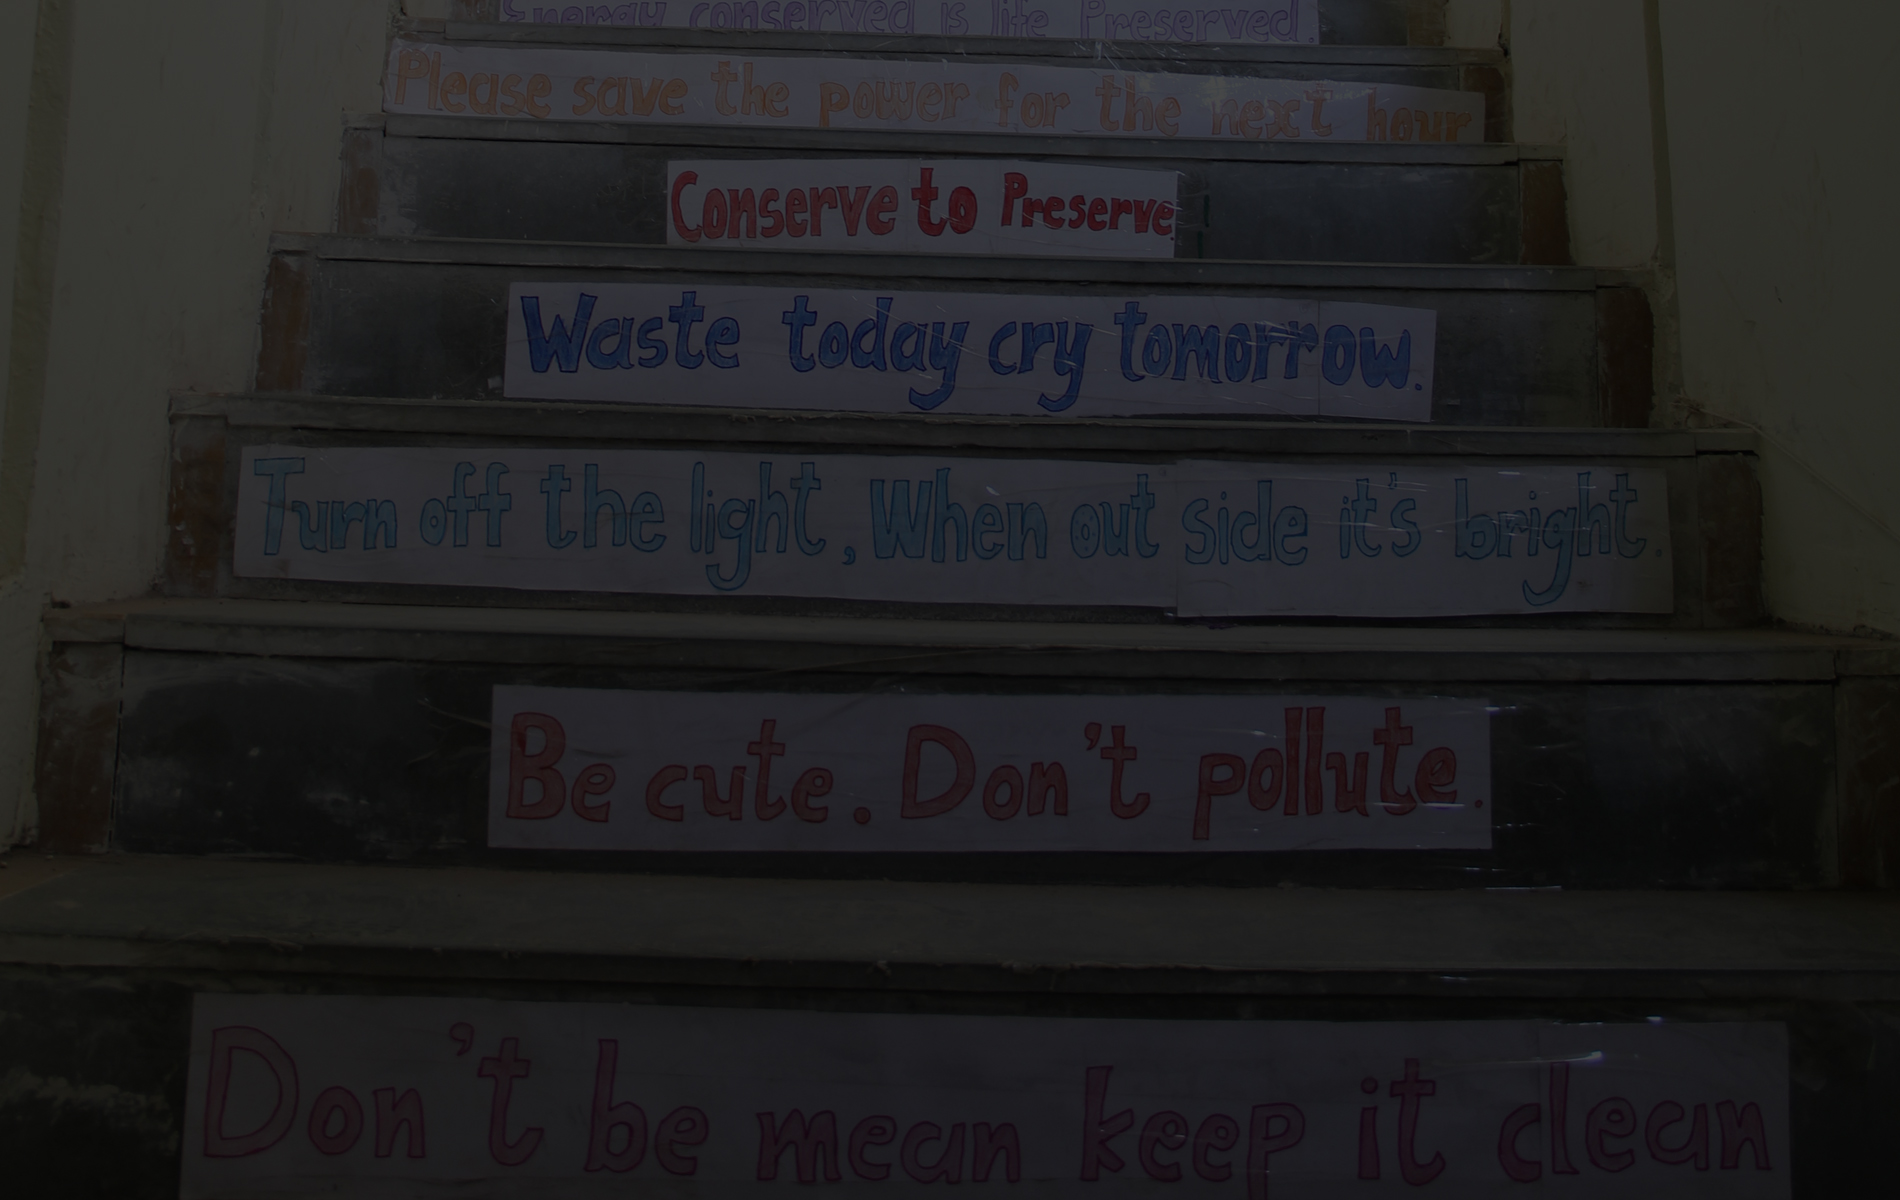 Energy conserved is life Preserved.
Please save the power for the next hour
Conserve to Preserve
Waste today cry tomorrow.
Turn off the light, When out side it's bright.
Be cute. Don't pollute.
Don't be mean keep it clean